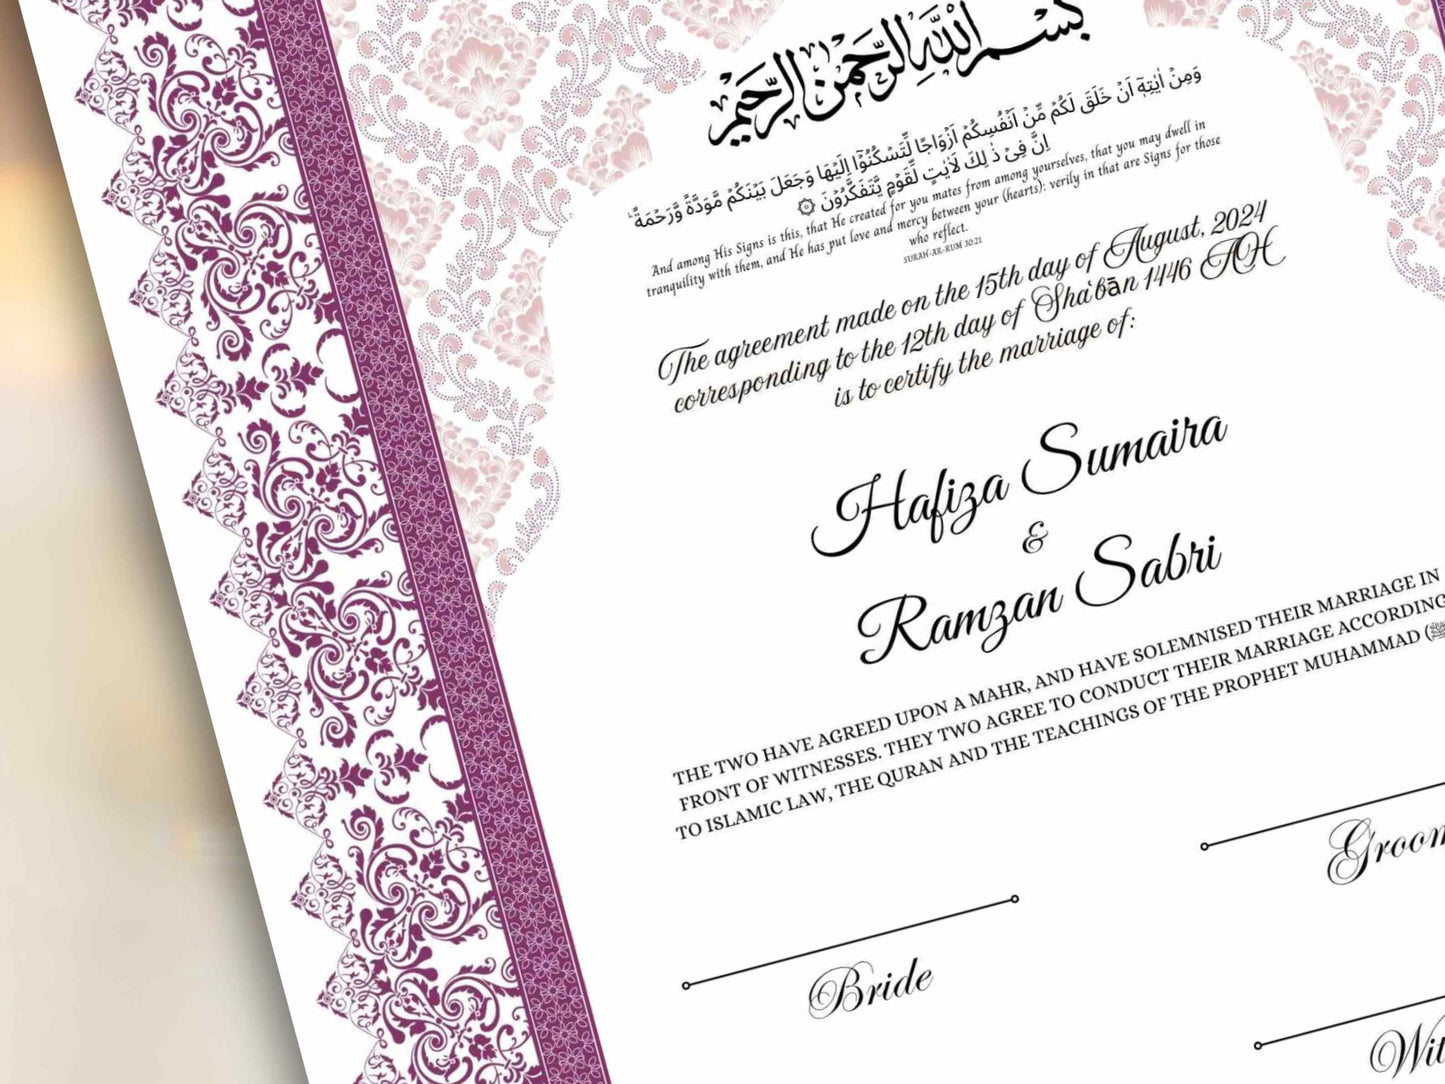 بِسْمِ اللَّهِ الرَّحْمَٰنِ الرَّحِيمِ
وَمِنْ اٰيٰتِهٖٓ اَنْ خَلَقَ لَكُمْ مِّنْ اَنْفُسِكُمْ اَزْوَاجًا لِّتَسْكُنُوْٓا اِلَيْهَا وَجَعَلَ بَيْنَكُمْ مَّوَدَّةً وَّرَحْمَةً ؕ
اِنَّ فِىْ ذٰ لِكَ لَاٰيٰتٍ لِّقَوْمٍ يَّتَفَكَّرُوْنَ ۞
And among His Signs is this, that He created for you mates from among yourselves, that you may dwell in
tranquility with them, and He has put love and mercy between your (hearts): verily in that are Signs for those
who reflect.
SURAH-AR-RUM 30:21
The agreement made on the 15th day of August, 2024
corresponding to the 12th day of Sha'bān 1446 AH
is to certify the marriage of:
Hafiza Sumaira
&
Ramzan Sabri
THE TWO HAVE AGREED UPON A MAHR, AND HAVE SOLEMNISED THEIR MARRIAGE IN
FRONT OF WITNESSES. THEY TWO AGREE TO CONDUCT THEIR MARRIAGE ACCORDING
TO ISLAMIC LAW, THE QURAN AND THE TEACHINGS OF THE PROPHET MUHAMMAD (ﷺ
Groom
Bride
Wit